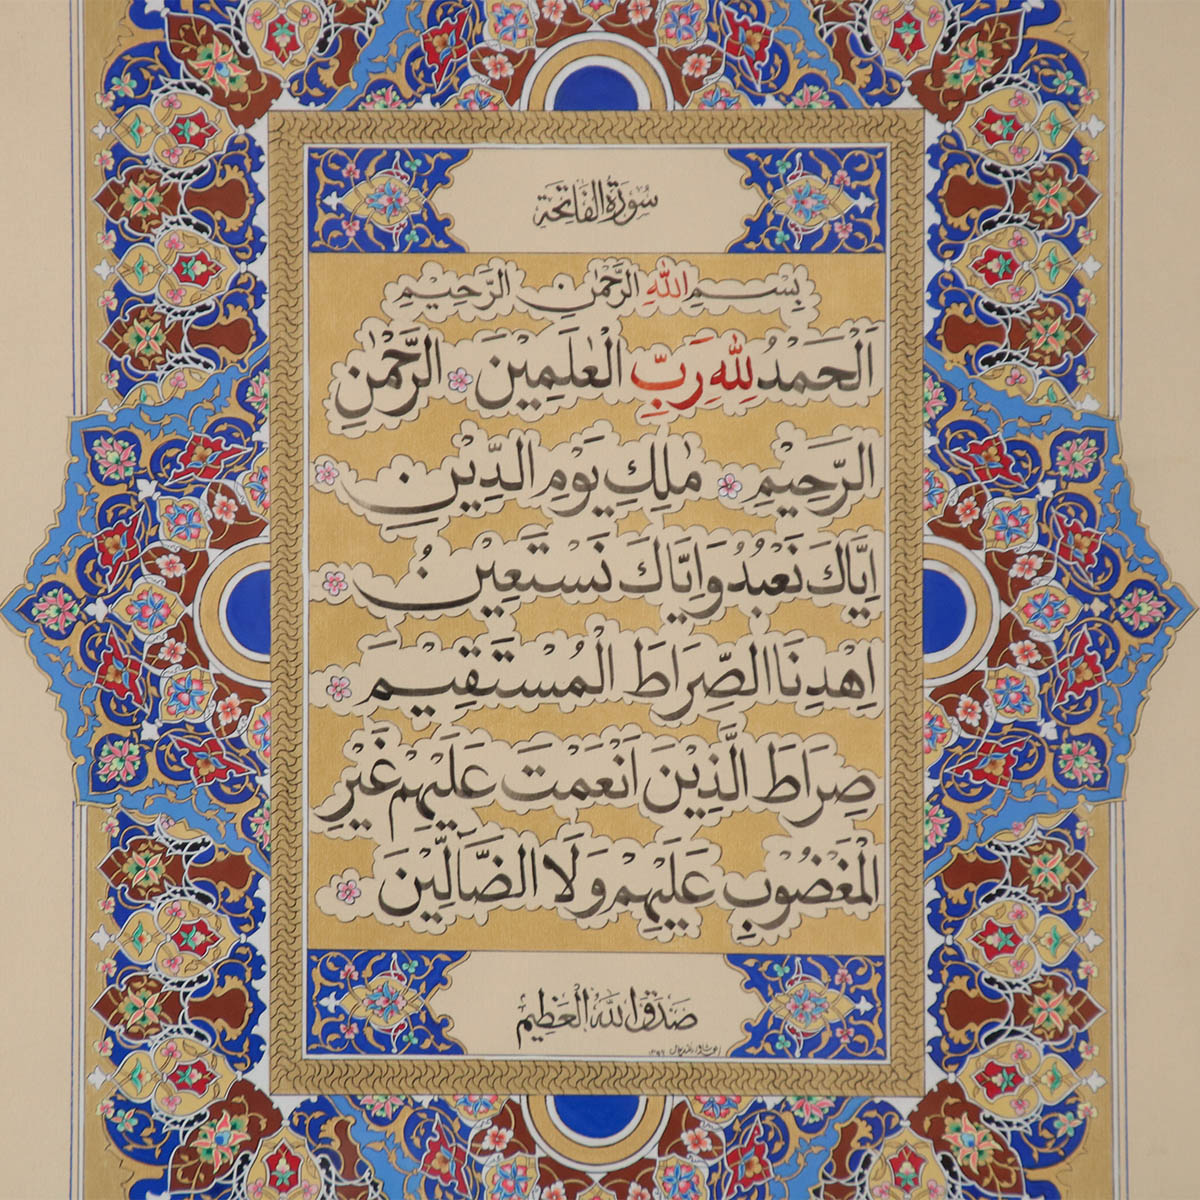 سُورَةُ الْفَاتِحَة
بِسْمِ اللّٰهِ الرَّحْمٰنِ الرَّحِيْمِ
اَلْحَمْدُ لِلّٰهِ رَبِّ الْعٰلَمِيْنَ الرَّحْمٰنِ
الرَّحِيْمِ مٰلِكِ يَوْمِ الدِّيْنِ
اِيَّاكَ نَعْبُدُ وَاِيَّاكَ نَسْتَعِيْنُ
اِهْدِنَا الصِّرَاطَ الْمُسْتَقِيْمَ
صِرَاطَ الَّذِيْنَ اَنْعَمْتَ عَلَيْهِمْ غَيْرِ
الْمَغْضُوْبِ عَلَيْهِمْ وَلَا الضَّآلِّيْنَ
صَدَقَ اللّٰهُ الْعَظِيْم